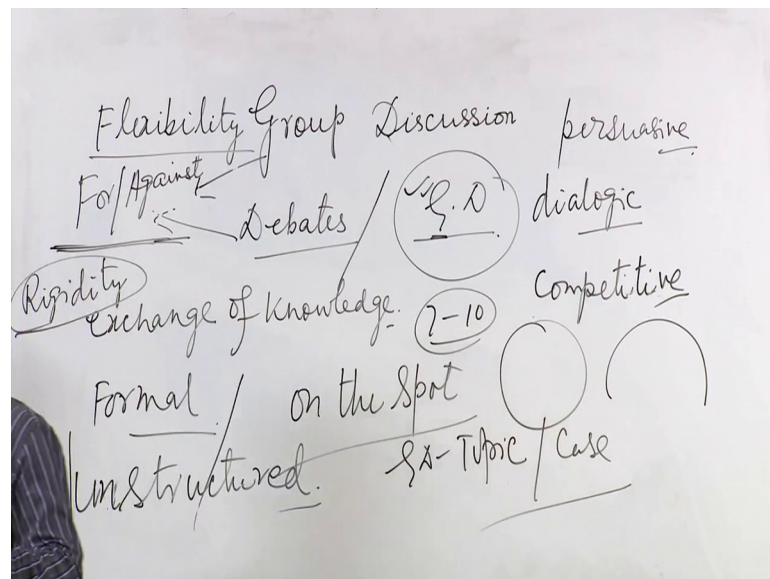 Flexibility Group Discussion persuasive
For/Against
Debates / G.D dialogic
Rigidity
Exchange of Knowledge. 7-10 Competitive
Formal / on the Spot
unstructured. GD- Topic / Case